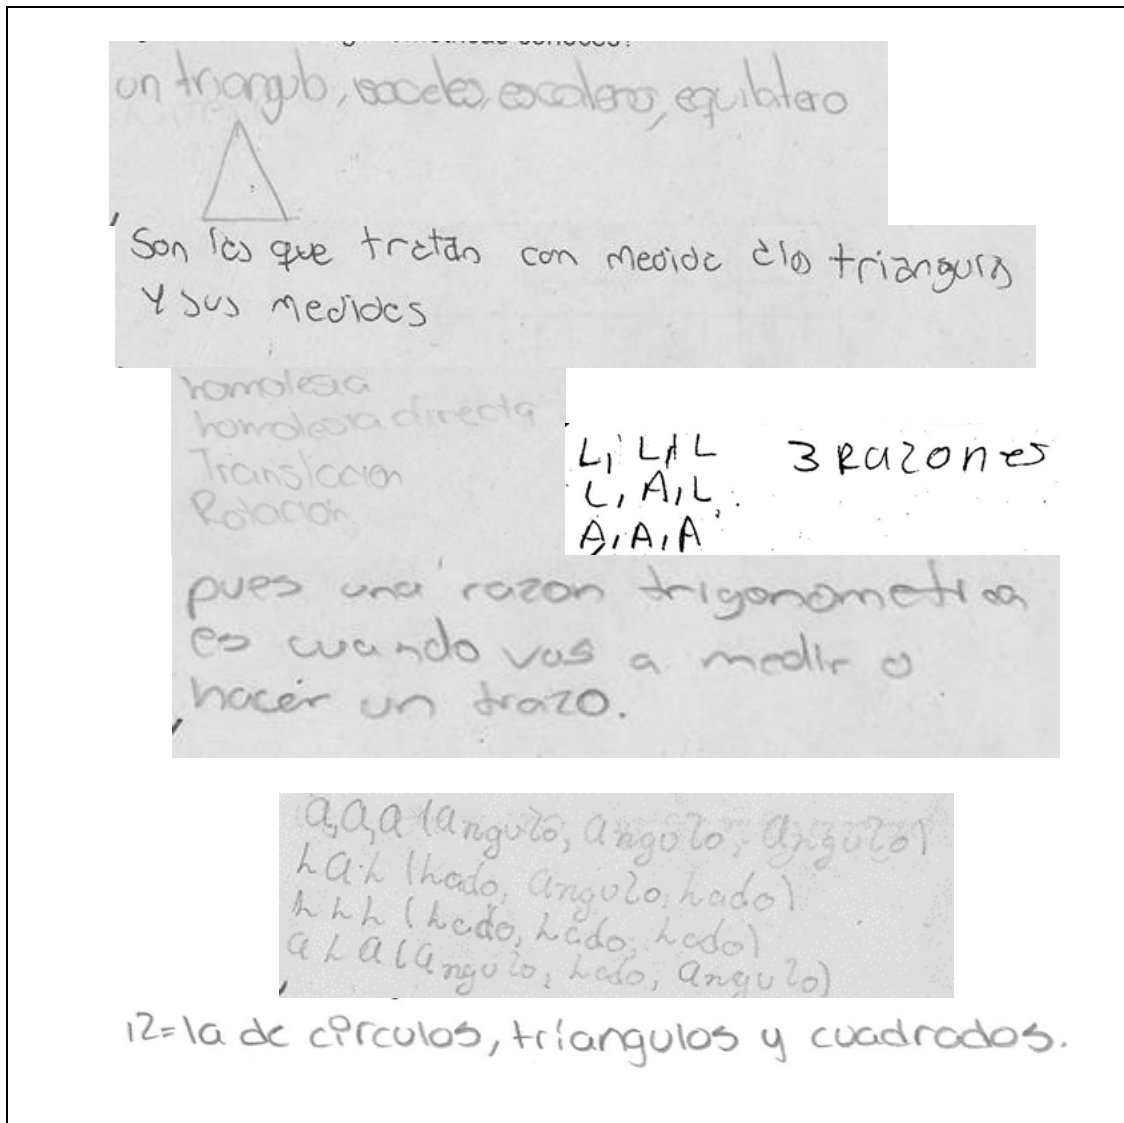 un triangulo, isoceles, escaleno, equilatero
Son las que tratan con medida triangulos
Y sus medidas
homotesia
homotesia directa
Translacion
Rotación
L, L, L 3 Razones
L, A, L
A, A, A
pues una razon trigonometrica
es cuando vas a medir o
hacer un trazo.
a,a,a (angulo, angulo, angulo)
LaL (Lado, angulo, Lado)
LLL (Lado, Lado, Lado)
aLa (angulo, Lado, angulo)
12= la de círculos, triangulos y cuadrados.